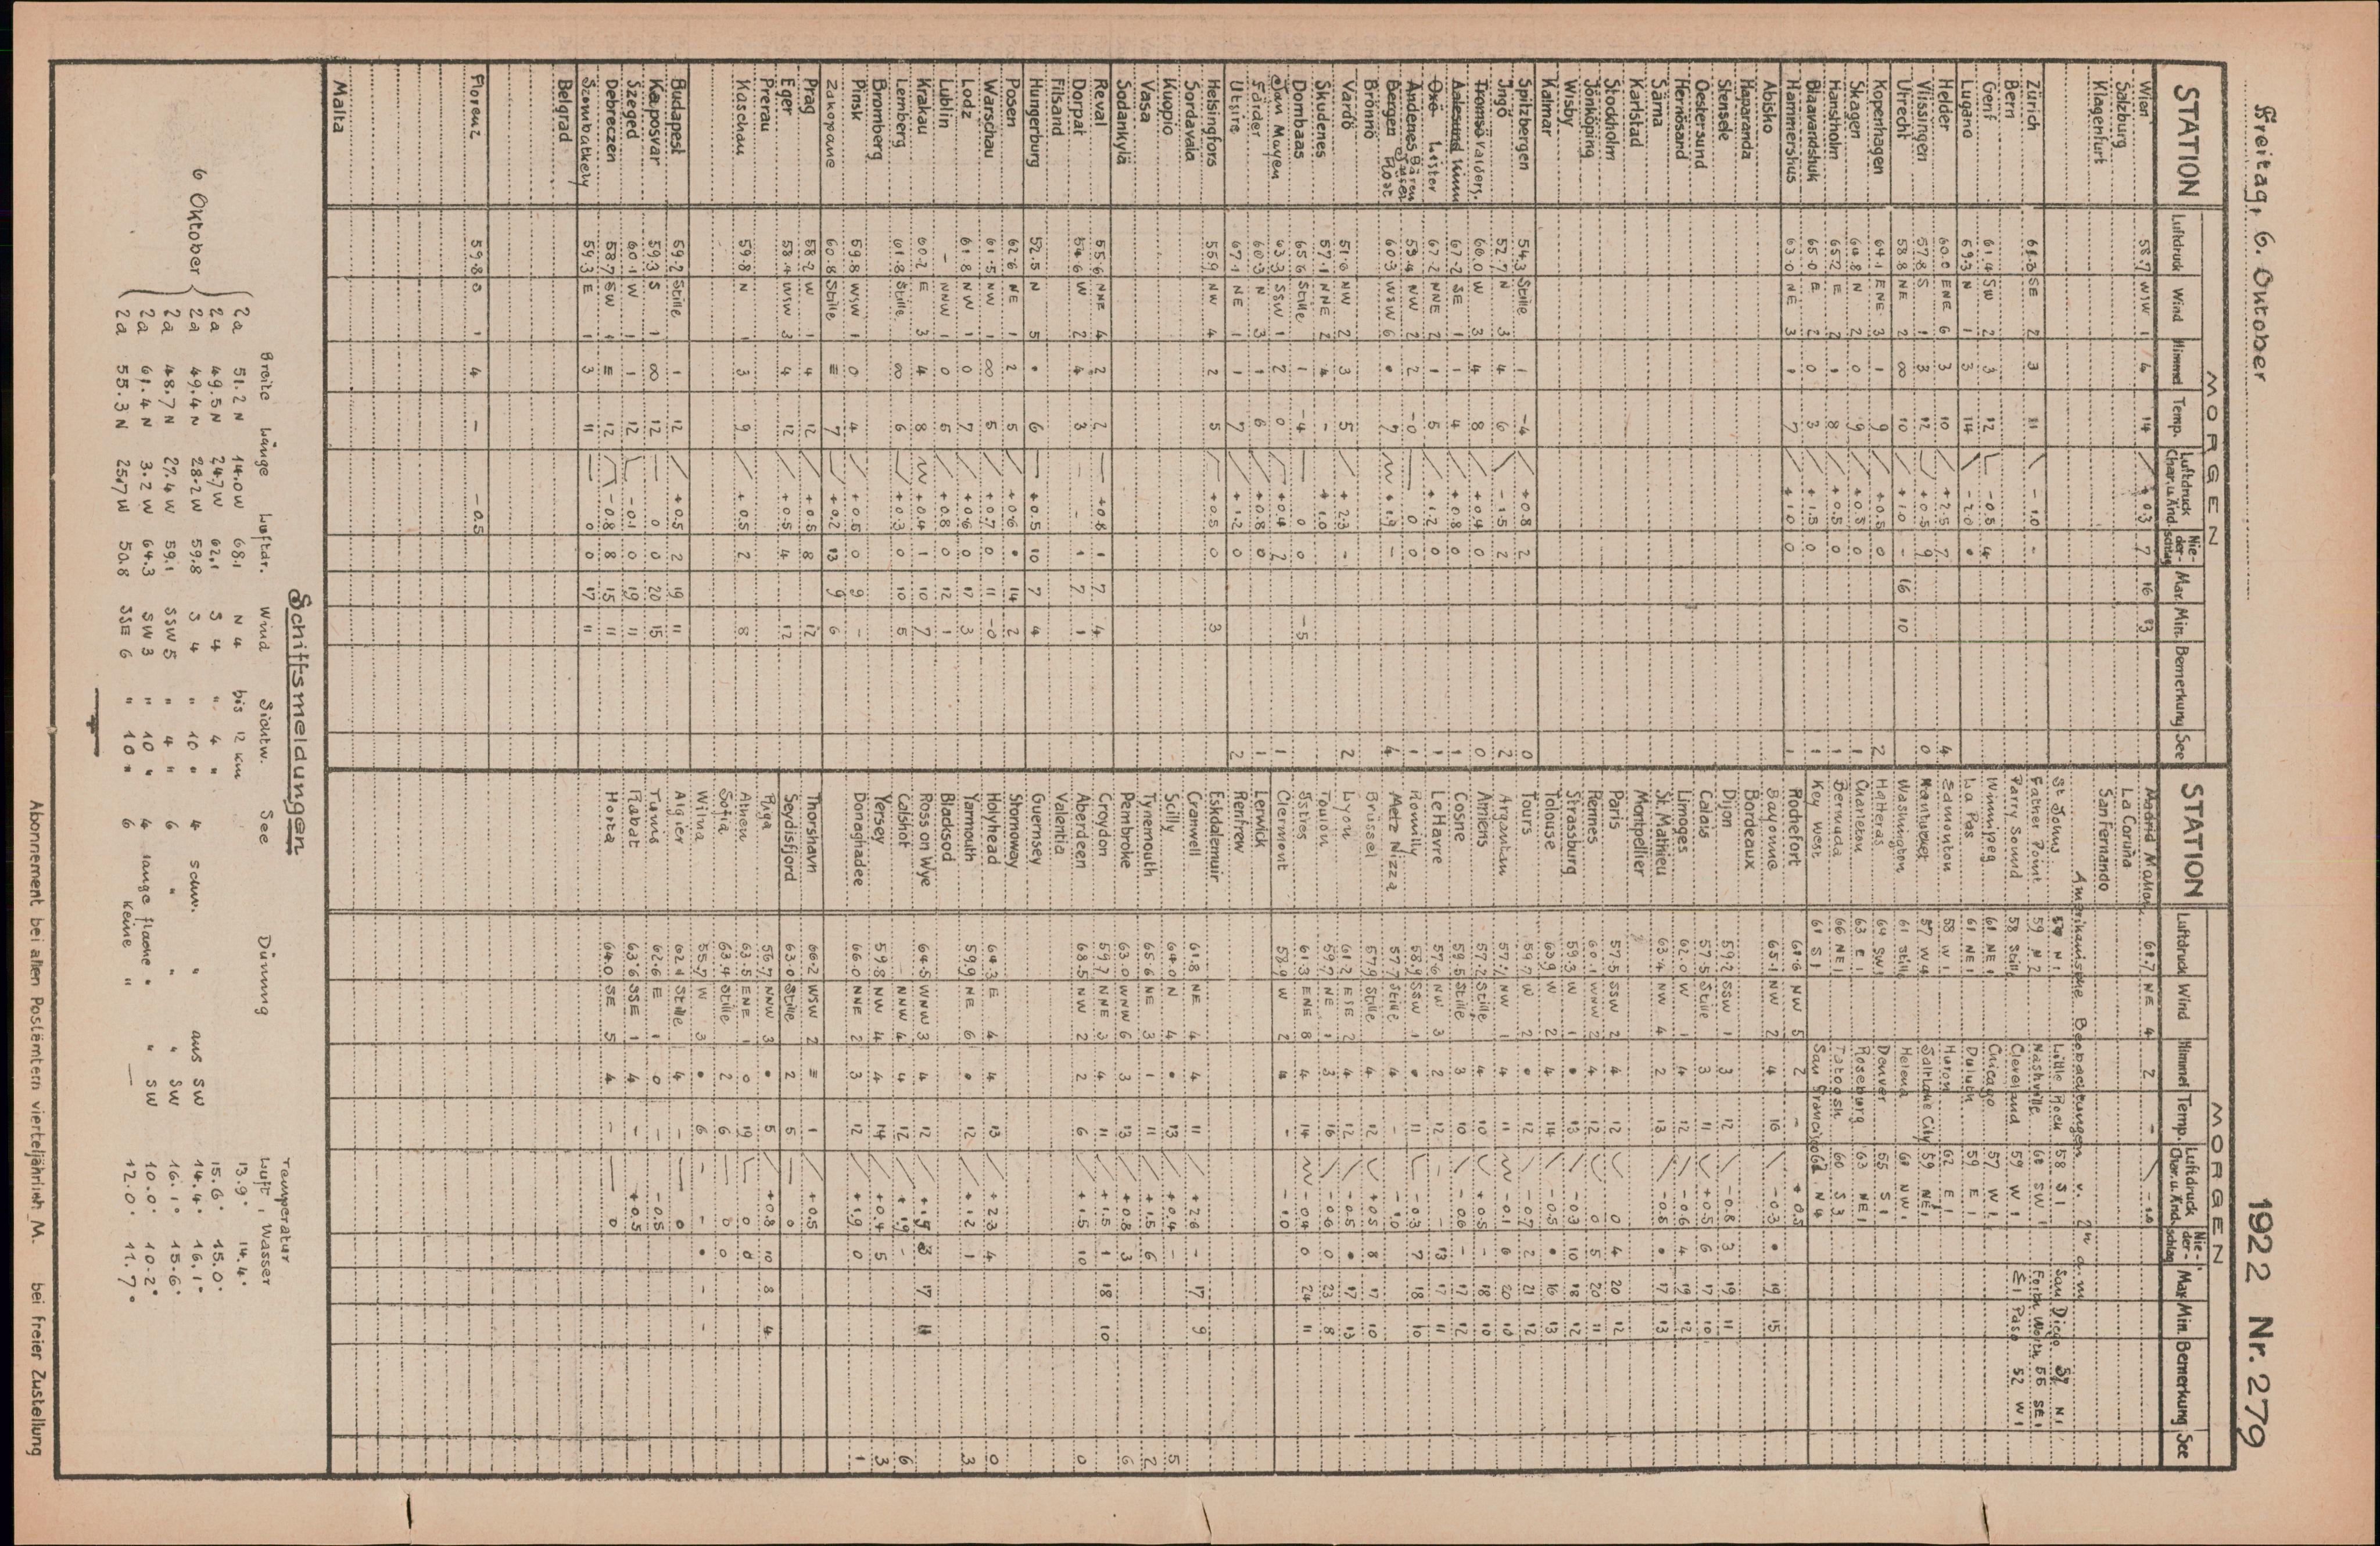 Freitag, 6. Oktober 1922 Nr. 279
MORGEN
STATION Luftdruck Wind Himmel Temp. Luftdruck Char. u. Änd. Nie-der-schlag Max. Min. Bemerkung See
Wien 58.7 WSW 1 4 14 +0.3 7 16 13
Salzburg
Klagenfurt
Zürich 61.3 SE 2 3 11 -1.0 -
Bern
Genf 61.4 SW 2 3 12 -0.5 4
Lugano 59.3 N 1 3 14 -2.0 •
Helder 60.0 ENE 6 3 10 +2.5 7 4
Vlissingen 57.8 S 1 3 12 +0.5 9 0
Utrecht 58.8 NE 2 ∞ 10 +1.0 - 16 10
Kopenhagen 64.1 ENE 3 1 9 +0.5 0 2
Skagen 64.8 N 2 0 9 +0.5 0 1
Hanstholm 65.2 E 2 1 8 +0.5 0 1
Blaavandshuk 65.0 E 2 0 3 +1.5 0 1
Hammershus 63.0 NE 3 1 7 +1.0 0 1
Abisko
Haparanda
Stensele
Oestersund
Hernösand
Särna
Karlstad
Stockholm
Jönköping
Wisby
Kalmar
Spitzbergen 54.3 Stille 1 -4 +0.8 2 0
Ingö 52.7 N 3 4 6 -1.5 2 2
Tromsö Valders. 60.0 W 3 4 8 +0.4 0 0
Aalesund Kinn 67.2 SE 1 1 4 +0.8 0 1
Oxö Lister 67.2 NNE 2 1 5 +1.2 0 1
Andenes Bären Inseln 59.4 NW 2 2 -0 0 0 1
Bergen Röst 60.3 WSW 6 • 7 +1.9 - 4
Brönnö
Vardö 51.0 NW 2 3 5 +2.3 - 2
Skudenes 57.1 NNE 2 4 - +1.0
Dombaas 65.6 Stille 1 -4 0 0 -5
Jan Mayen 63.3 SSW 1 2 0 +0.4 2 1
Färder 60.3 N 3 1 6 +0.8 0 1
Utsire 67.1 NE 1 1 7 +1.2 0 2
Helsingfors 55.9 NW 4 2 5 +0.5 0 3
Sordavala
Kuopio
Vasa
Sodankylä
Reval 55.6 NNE 4 2 2 +0.8 1 7 4
Dorpat 54.6 W 2 4 3 - 1 7 1
Filsand
Hungerburg 52.5 N 5 • 6 +0.5 10 7 4
Posen 62.6 NE 1 2 5 +0.6 • 14 2
Warschau 61.5 NW 1 ∞ 5 +0.7 0 11 -0
Lodz 61.8 NW 1 0 7 +0.6 0 17 3
Lublin - NNW 1 0 5 +0.8 0 12 1
Krakau 60.2 E 3 4 8 +0.4 1 10 7
Lemberg 61.8 Stille ∞ 6 +0.3 0 10 5
Bromberg
Pinsk 59.8 WSW 1 0 4 +0.5 0 9 -
Zakopane 60.8 Stille ≡ 7 +0.2 13 9 6
Prag 58.2 W 1 4 12 +0.5 8 12
Eger 58.4 WSW 3 4 12 +0.5 4 12
Prerau
Kaschau 59.8 N 1 3 9 +0.5 2 8
Budapest 59.2 Stille 1 12 +0.5 2 19 11
Kaposvar 59.3 S 1 ∞ 12 0 0 20 15
Szeged 60.1 W 1 1 12 -0.1 0 19 11
Debreczen 58.7 SW 1 ≡ 12 -0.8 8 15 11
Szombathely 59.3 E 1 3 11 0 0 17 11
Belgrad
Florenz 59.8 1 4 - -0.5
Malta
MORGEN
STATION Luftdruck Wind Himmel Temp. Luftdruck Char. u. Änd. Nie-der-schlag Max. Min. Bemerkung See
Madrid Mahon 61.7 NE 4 2 - -1.0
La Coruña
San Fernando
Amerikanische Beobachtungen v. 2h a.m
St Johns N 1 Little Rock 58 S 1 San Diego 57 N 1
Father Point 59 N 2 Nashville 60 SW 1 Forth Worth 55 SE 1
Parry Sound 58 Still Cleveland 59 W 1 El Paso 52 W 1
Winnipeg 61 NE 1 Chicago 57 W 1
La Pas 61 NE 1 Duluth 59 E 1
Edmonton 58 W 1 Huron 62 E 1
Nantucket 57 W 4 Salt Lake City 59 NE 1
Washington 61 Still Helena 60 NW 1
Hatteras 64 SW 1 Denver 55 S 1
Charleston 63 E 1 Roseburg 63 NE 1
Bermuda 66 NE 1 Tatoosh 60 S 3
Key West 61 S 1 San Francisco 62 N 4
Rochefort 61.6 NW 5 2 - +0.5
Bayonne 65.1 NW 2 4 16 -0.3 • 19 15
Bordeaux
Dijon 59.2 SSW 1 3 12 -0.8 3 19 11
Calais 57.5 Stille 3 11 +0.5 6 17 10
Limoges 62.0 W 1 4 12 -0.6 4 19 12
St. Mathieu 63.4 NW 4 2 13 -0.8 • 17 13
Montpellier
Paris 57.5 SSW 2 4 12 0 4 20 12
Rennes 60.1 WNW 2 4 12 0 5 20 11
Strassburg 59.3 W 1 • 13 -0.3 10 18 12
Tolouse 63.9 W 2 4 14 -0.5 • 16 13
Tours 59.7 W 2 • 12 -0.7 2 21 12
Argentan 57.7 NW 1 4 11 -0.1 6 20 10
Amiens 57.2 Stille 4 10 +0.5 - 18 10
Cosne 59.5 Stille 3 10 -0.6 - 17 12
Le Havre 57.6 NW 3 2 12 - 13 17 11
Romilly 58.9 SSW 1 • 11 -0.3 7 18 10
Metz Nizza 57.7 Stille 4 - -1.0
Brüssel 57.9 Stille 4 12 +0.5 8 17 10
Lyon 61.2 ESE 2 4 12 -0.5 • 17 13
Toulon 59.7 NE 1 3 16 -0.6 0 23 8
Istres 61.3 ENE 8 4 14 -0.4 0 24 11
Clermont 58.9 W 2 - -1.0
Lerwick
Renfrew
Eskdalemuir
Cranwell 61.8 NE 4 4 11 +2.6 - 17 9
Scilly 64.0 N 4 • 13 +0.4 - 5
Tynemouth 65.6 NE 3 1 11 +1.5 6 2
Pembroke 63.0 WNW 6 3 13 +0.8 3 6
Croydon 59.7 NNE 3 4 11 +1.5 1 18 10
Aberdeen 68.5 NW 2 2 6 +1.5 10 0
Valentia
Guernsey
Stornoway
Holyhead 64.3 E 4 4 13 +2.3 4 0
Yarmouth 59.9 NE 6 • 12 +1.2 1 3
Blacksod
Ross on Wye 64.5 WNW 3 4 12 +1.9 3 17 11
Calshot - NNW 4 4 12 +1.9 - 6
Yersey 59.8 NW 4 4 14 +0.4 5 3
Donaghadee 66.0 NNE 2 3 12 +1.9 0 1
Thorshavn 66.2 WSW 2 ≡ 1 +0.5
Seydisfjord 63.0 Stille 2 5 0
Riga 56.7 NNW 3 • 5 +0.8 10 8 4
Athen 63.5 ENE 1 0 19 0 0
Sofia 63.4 Stille 2 6 0 0
Wilna 55.7 W 3 • 6 - • - -
Algier 62.1 Stille 4 - 0
Tunis 62.6 E 1 0 - -0.5
Rabat 63.6 SSE 1 4 - +0.5
Horta 64.0 SE 5 4 - 0
Schiffsmeldungen
Breite Länge Luftdr. Wind Sichtw. See Dünung Temperatur Luft, Wasser
6 Oktober
2a 51.2 N 14.0 W 68.1 N 4 bis 12 km 13.9° 14.4°
2a 49.5 N 24.7 W 62.1 S 4 " 4 " 15.6° 15.0°
2a 49.4 N 28.2 W 59.8 S 4 " 10 " 4 schw. " aus SW 14.4° 16.1°
2a 48.7 N 27.4 W 59.1 SSW 5 " 4 " 6 " " " SW 16.1° 15.6°
2a 61.4 N 3.2 W 64.3 SW 3 " 10 " 4 lange flache " " SW 10.0° 10.2°
2a 55.3 N 25.7 W 50.8 SSE 6 " 10 " 6 keine " — 12.0° 11.7°
Abonnement bei allen Postämtern vierteljährlich M. bei freier Zustellung